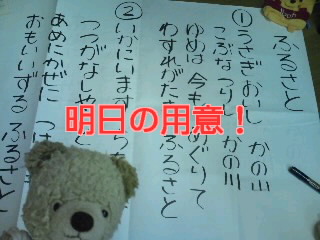 ふるさと
①うさぎ おいし かの山
こぶな つりし かの川
ゆめは 今も めぐりて
わすれがたき ふるさと
②
いかにいます
つつがなしや
あめに かぜに つけ
おもいいずる ふるさと
明日の用意！